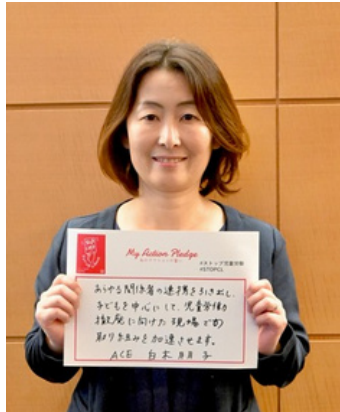 My Action Pledge
#ストップ児童労働
#STOPCL
あらゆる関係者の連携を引き出し、
子どもを中心にして、児童労働
撤廃に向けた現場での
取り組みを加速させます。
ACE 白木朋子